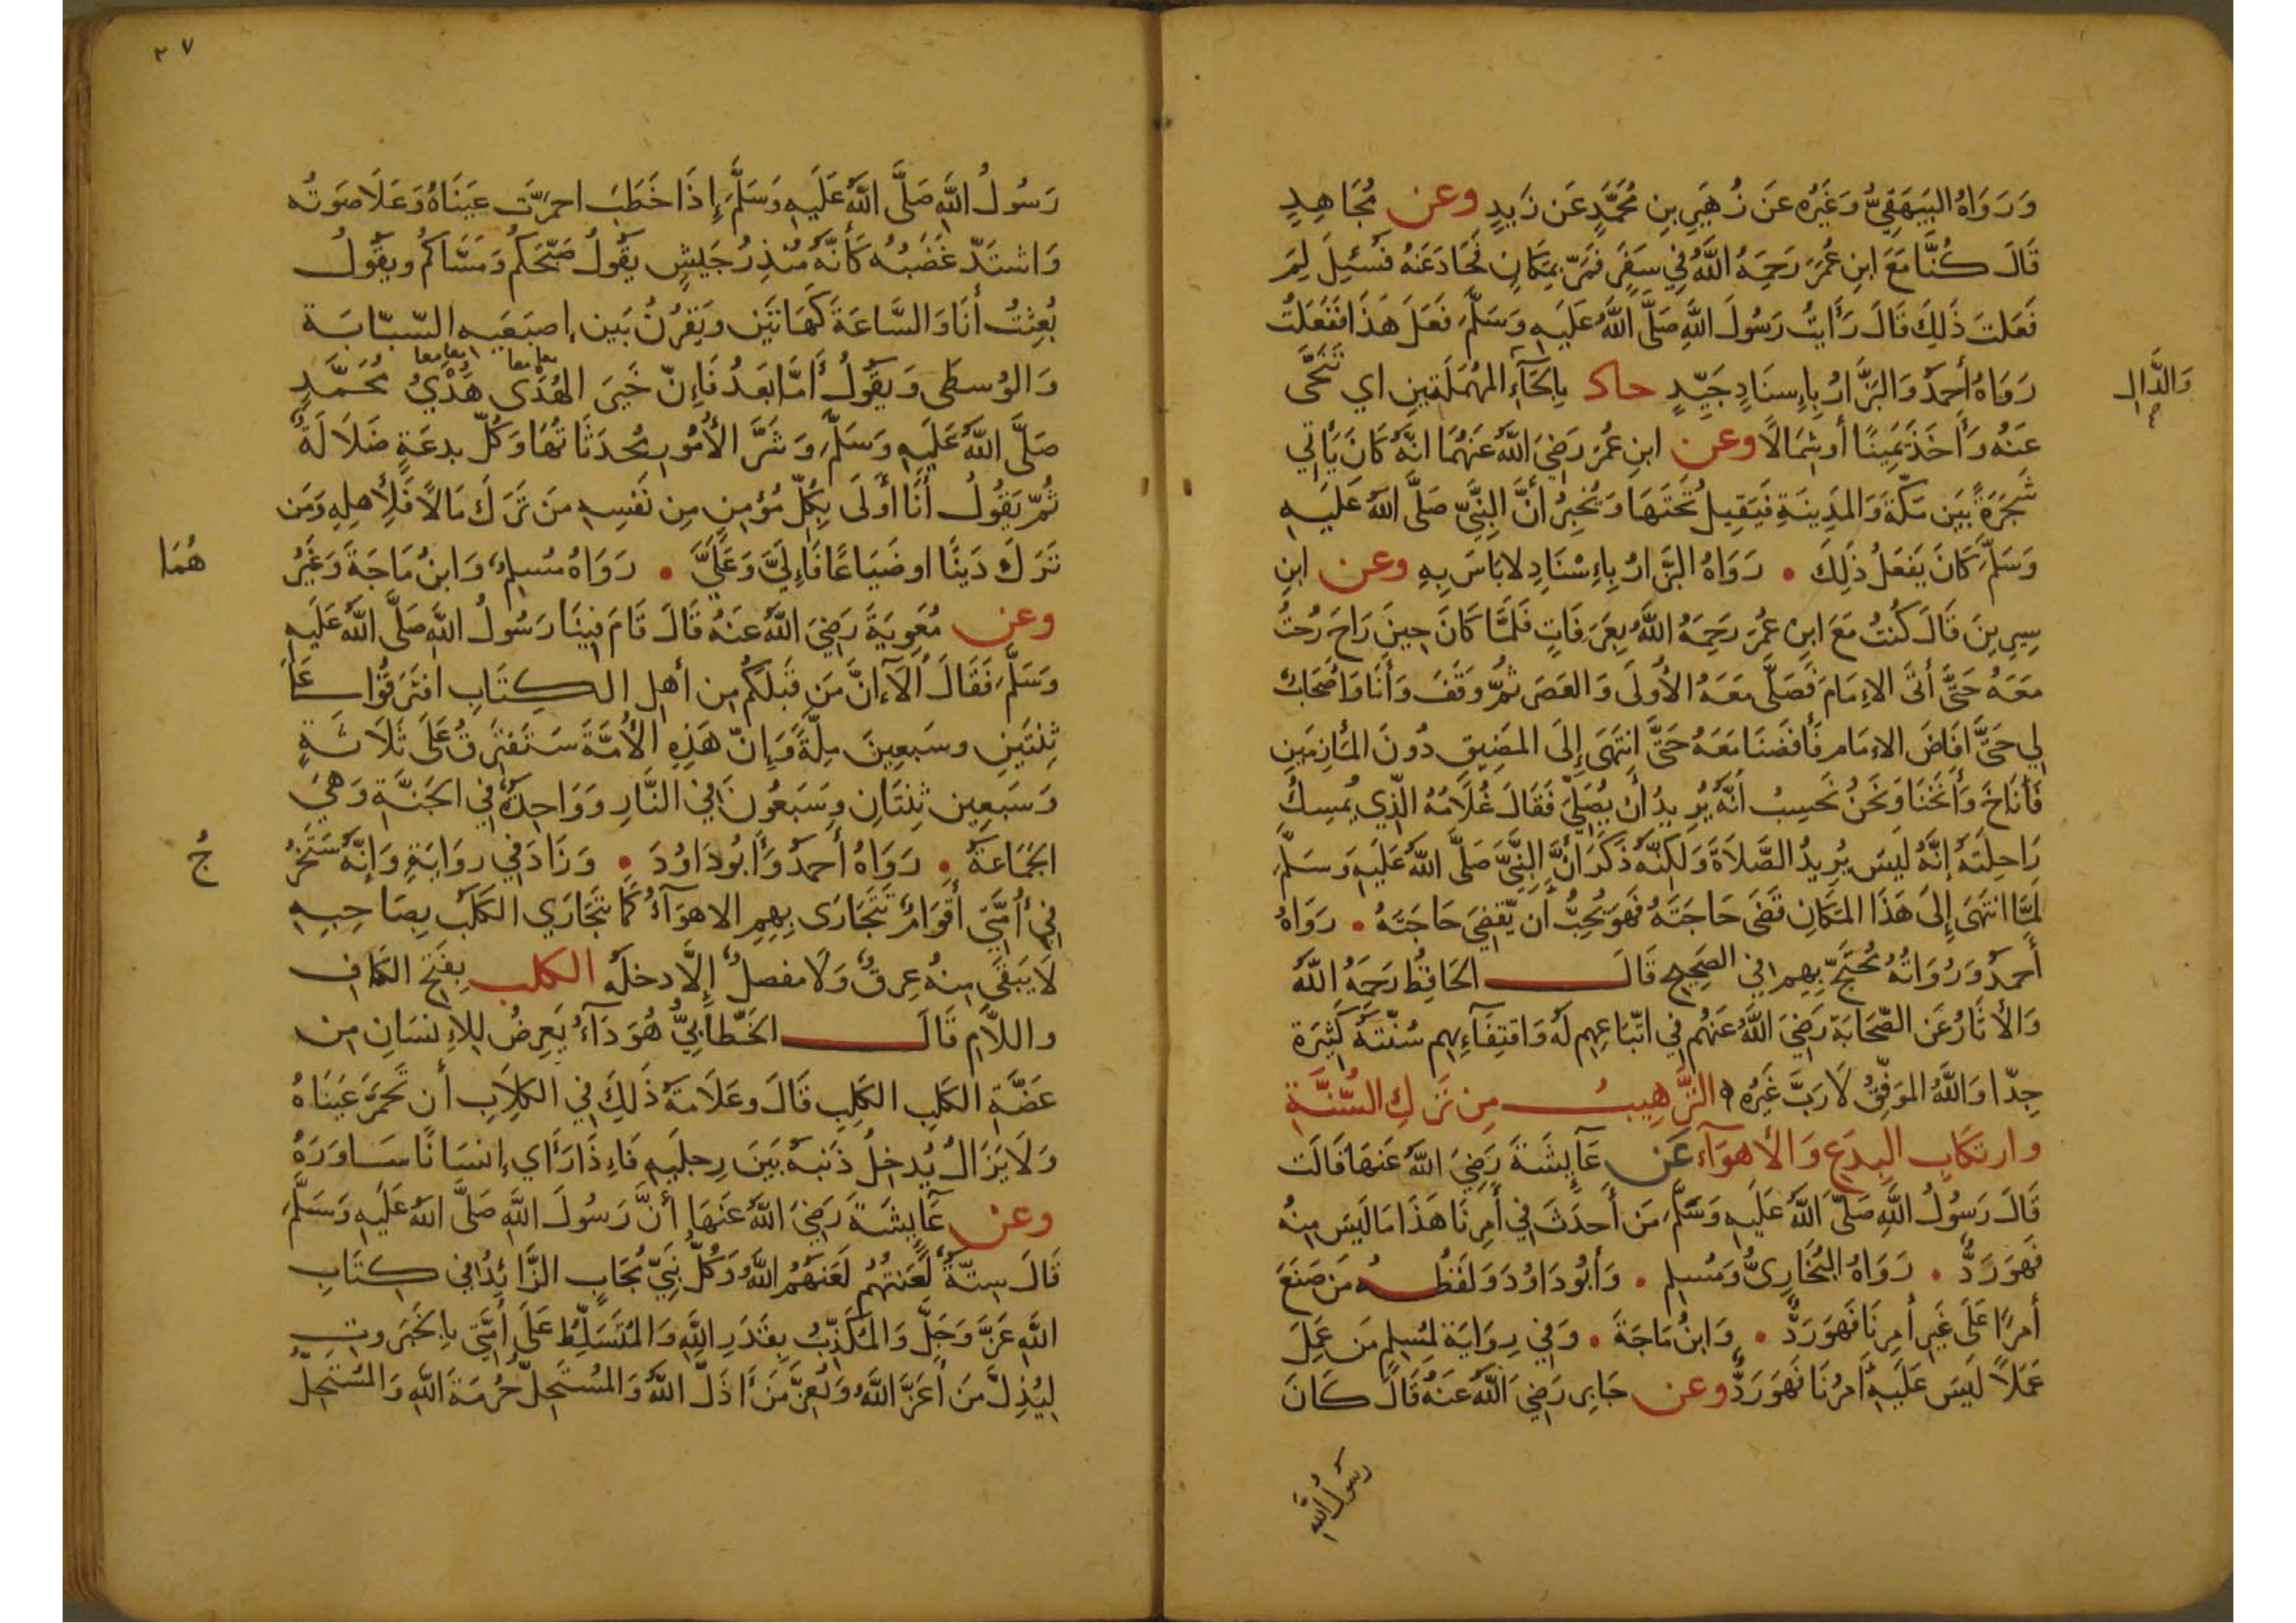 وَرَوَاهُ البَيهَقِيُّ وَغَيرُه عَن زُهَيرِ بنِ مُحَمَّدٍ عَن زَيدٍ وعن مُجَاهِدٍ
قَالَ كُنَّا مَعَ ابنِ عُمَرَ رَحِمَهُ اللَّهُ فِي سَفَرٍ فَمَرَّ بِمَكَانٍ فَحَادَ عَنهُ فَسُئِلَ لِمَ
فَعَلتَ ذَلِكَ قَالَ رَأَيتُ رَسُولَ اللَّهِ صَلَّى اللَّهُ عَلَيهِ وَسَلَّمَ فَعَلَ هَذَا فَفَعَلتُ
رَوَاهُ أَحمدُ وَالبَزَّارُ بِإِسنَادٍ جَيِّدٍ حاد بِالحَآءِ المُهمَلَتَينِ اي تَنَحَّى
وَالدَّالِ
عَنهُ وَأَخَذَ يَمِينًا أو شِمَالًا وعن ابنِ عُمَرَ رَضِيَ اللَّهُ عَنهُمَا انَّهُ كَانَ يَأتِي
شَجَرَةً بَينَ مَكَّةَ وَالمَدِينَةِ فَيَقِيلُ تَحتَهَا وَيُخبِرُ أَنَّ النَّبِيَّ صَلَّى اللَّهُ عَلَيهِ
وَسَلَّمَ كَانَ يَفعَلُ ذَلِكَ • رَوَاهُ البَزَّارُ بِإِسْنَادٍ لابَاسَ بِهِ وعن ابنِ
سِيرِينَ قَالَ كُنتُ مَعَ ابنِ عُمَرَ رَحِمَهُ اللَّهُ بِعَرَفَاتٍ فَلَمَّا كَانَ حِينَ رَاحَ رُحتُ
مَعَهُ حَتَّى أَتَى الإِمَامَ فَصَلَّى مَعَهُ الأُولَى وَالعَصرَ ثُمَّ وَقَفَ وَأَنَا وَأَصحَابٌ
لِي حَتَّى افَاضَ الإِمَام فَأَفَضنَا مَعَهُ حَتَّى انتَهَى إِلَى المَضِيقِ دُونَ المَأزِمَينِ
فَأَنَاخَ وَأَنَخنَا وَنَحنُ نَحسِبُ أَنَّهُ يُرِيدُ أَن يُصَلِّيَ فَقَالَ غُلَامُهُ الَّذِي يُمسِكُ
رَاحِلَتَهُ إِنَّهُ لَيسَ يُرِيدُ الصَّلَاةَ وَلَكِنَّهُ ذَكَرَ أَنَّ النَّبِيَّ صَلَّى اللَّهُ عَلَيهِ وَسَلَّمَ
لَمَّا انتَهَى إِلَى هَذَا المَكَانِ قَضَى حَاجَتَهُ فَهوَ يُحِبُّ أَن يَقضِيَ حَاجَتَهُ • رَوَاهُ
أَحمدُ وَرُوَاتُهُ مُحتَجٌّ بِهِم فِي الصَّحِيحِ قَالَ الحَافِظُ رَحِمَهُ اللَّهُ
وَالأَثَارُ عَن الصَّحَابَةِ رَضِيَ اللَّهُ عَنهُم فِي اتِّبَاعِهِم لَهُ وَاقتِفَآءِهِم سُنَّتَهُ كَثِيرَة
جِدًّا وَاللَّهُ المُوَفِّقُ لَا رَبَّ غَيرُه التَّرهِيبُ مِن تَركِ السُّنَّةِ
وارتكَابِ البِدَعِ وَالأَهوَآءِ عَن عَآيِشَةَ رَضِيَ اللَّهُ عَنهَا قَالَت
قَالَ رَسُولُ اللَّهِ صَلَّى اللَّهُ عَلَيهِ وَسَلَّمَ مَن أَحدَثَ فِي أَمرِنَا هَذَا مَا لَيسَ مِنهُ
فَهوَ رَدٌّ • رَوَاهُ البُخَارِيُّ وَمُسلِم • وَأَبُودَاوُدَ وَلَفظُهُ مَن صَنَعَ
أَمرًا عَلَى غَيرِ أَمرِنَا فَهوَ رَدٌّ • وَابنُ مَاجَةَ • وَفي رِوَايَة لمُسِلمٍ مَن عَمِلَ
عَمَلًا لَيسَ عَلَيهِ أَمرُنَا فَهوَ رَدٌّ وعن جَابِرٍ رَضِيَ اللَّهُ عَنهُ قَالَ كَانَ
رَسُولُ اللَّهِ
٢٧
رَسُولُ اللَّهِ صَلَّى اللَّهُ عَلَيهِ وَسَلَّمَ إِذَا خَطَبَ احمَرَّت عَينَاهُ وَعَلَا صَوتُه
وَاشتَدَّ غَضَبُهُ كَأَنَّهُ مُنذِرُ جَيشٍ يَقُولُ صَبَّحَكُم وَمَسَّاكُم ويقُولُ
بُعِثتُ أَنَا وَالسَّاعَةَ كَهَاتَينِ وَيَقرُنُ بَينِ إصبَعَيهِ السَّبَّابَة
وَالوُسطَى وَيَقُولُ أَمَّا بَعدُ فَإِنَّ خَيرَ الهُدَى هَدْيُ مُحَمَّدٍ
صَلَّى اللَّهُ عَلَيهِ وَسَلَّمَ وَشَرَّ الأُمُورِ مُحدَثَاتُهَا وَكُلّ بِدعَةٍ ضَلَالَةٌ
ثُمَّ يَقُولُ أَنَا أَولَى بِكُلِّ مُؤمِنٍ مِن نَفسِهِ مَن تَرَكَ مَالًا فَلِأَهلِهِ وَمَن
تَرَكَ دَينًا اوضَيَاعًا فَإِلَيَّ وَعَلَيَّ • رَوَاهُ مُسلِمٌ وَابنُ مَاجَةَ وَغَيرُ
هُمَا
وعن مُعَوِيَةَ رَضِيَ اللَّهُ عَنهُ قَالَ قَامَ فِينَا رَسُولُ اللَّهِ صَلَّى اللَّهُ عَلَيهِ
وَسَلَّمَ فَقَالَ أَلَآ إنَّ مَن قَبلَكُم مِن أَهلِ الكِتَابِ افتَرَقُوا عَلَى
ثِنتَينِ وسَبعِينَ مِلَّةً وَإِنَّ هَذِهِ الأُمَّةَ سَتَفتَرِقُ عَلَى ثَلَاثَةٍ
وَسَبعِين ثِنتَانِ وَسَبعُونَ فِي النَّارِ وَوَاحِدَةٌ فِي الجَنَّةِ وَهيَ
الجَمَاعَةُ • رَوَاهُ أَحمدُ وَأَبُودَاوُدَ • وَزَادَ فِي رِوَايَةٍ وَإِنَّهُ سَتَخرُ
جُ
فِي أُمَّتِي أَقوَامٌ تَتَجَارَى بِهِمِ الاهوَآءُ كَمَا يَتَجَارَي الكَلَبُ بِصَاحِبِهِ
لَا يَبقَى مِنهُ عِرقٌ وَلَا مفصلٌ إِلَّا دخلَهُ الكلب بِفَتحِ الكَافِ
واللَّامِ قَالَ الخَطَّابِيُّ هُوَ دَآءٌ يَعرِضُ لِلإِنسَانِ مِن
عَضَّةِ الكَلبِ الكَلِبِ قَالَ وعَلَامَةُ ذَلِكَ فِي الكِلَابِ أَن تَحمَرَّ عَينَاهُ
وَلَا يَزَالُ يُدخِلُ ذَنَبَهُ بَينَ رِجلَيهِ فَإِذَا رَأَاي إِنسَانًا سَاوَرَهُ
وعن عَآيِشَةَ رَضِيَ اللَّهُ عَنهَا أَنَّ رَسُولَ اللَّهِ صَلَّى اللَّهُ عَلَيهِ وَسَلَّمَ
قَالَ سِتَّةٌ لَعَنتُهُم لَعَنَهُمُ اللَّهُ وَكُلُّ نَبِيٍّ مُجَابٍ الزَّائِدُ فِي كِتَابِ
اللَّهِ عَزَّ وَجَلَّ وَالمُكَذِّبُ بِقَدَرِ اللَّهِ وَالمُتَسَلِّطُ عَلَى أُمَّتِي بِالجَبَروتِ
لِيُذِلَّ مَن أَعَزَّ اللَّهُ وَيُعِزَّ مَن أَذَلَّ اللَّهُ وَالمُستَحِلُّ حُرمَةَ اللَّهِ وَالمُستَحِلُّ